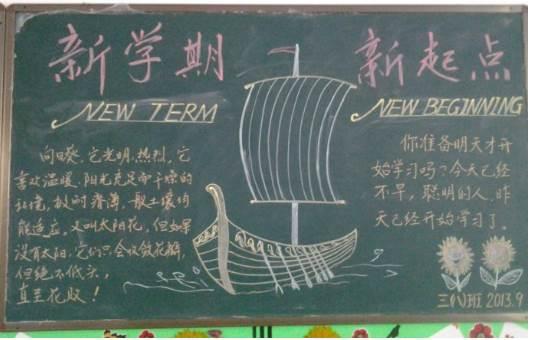 新学期
新起点
NEW TERM
NEW BEGINNING
向日葵,它光明.热烈.它
喜欢温暖.阳光充足而干燥的
环境,故耐瘠薄,一般土壤均
能适应。又叫太阳花,但如果
没有太阳,它们只会收敛花瓣,
但绝不低头,
直至花败!
你准备明天才开
始学习吗?今天已经
不早,聪明的人,昨
天已经开始学习了。
三(八)班 2013.9